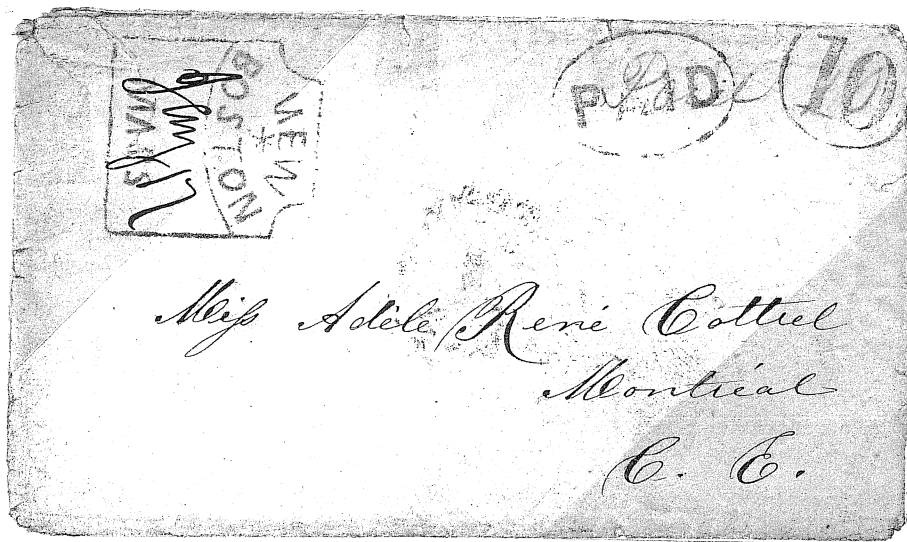 NEW
BOSTON
PAID
Paid
10
Miſs Adèle René Cottrel
Montréal
C. E.